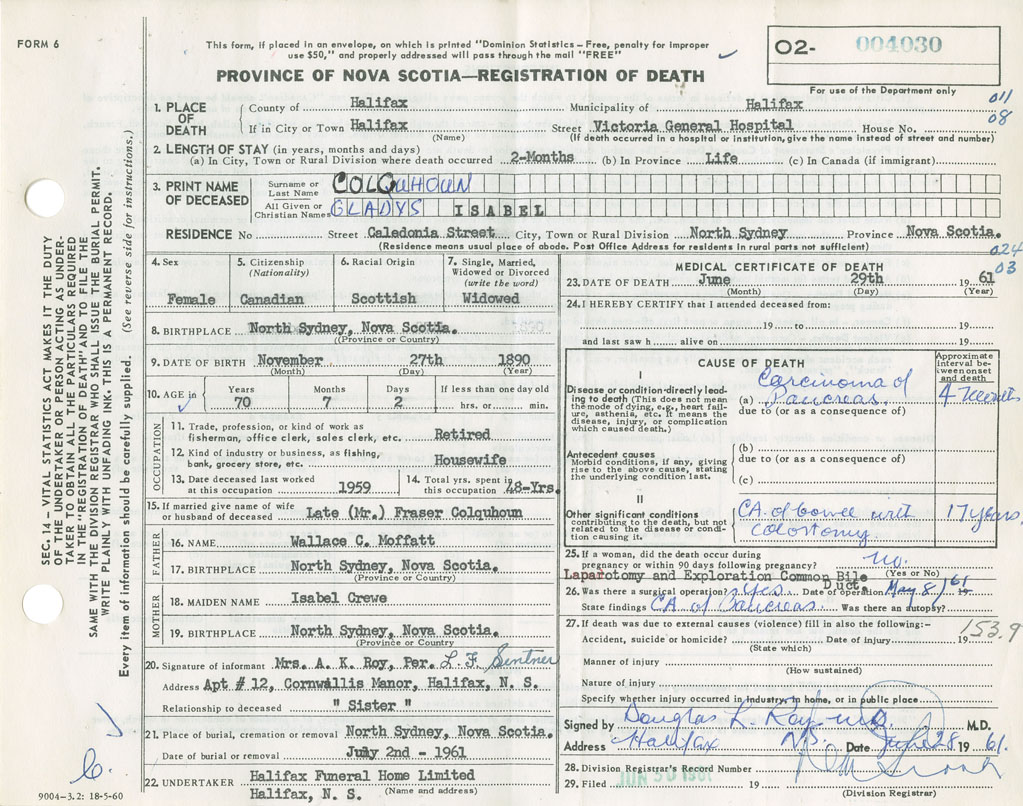 FORM 6
This form, if placed in an envelope, on which is printed "Dominion Statistics – Free, penalty for improper
use $50," and properly addressed will pass through the mail "FREE"
02- 004030
PROVINCE OF NOVA SCOTIA—REGISTRATION OF DEATH
For use of the Department only
011
08
1. PLACE OF DEATH
County of Halifax Municipality of Halifax
If in City or Town Halifax Street Victoria General Hospital House No.
(Name) (If death occurred in a hospital or institution, give the name instead of street and number)
2. LENGTH OF STAY (in years, months and days)
(a) In City, Town or Rural Division where death occurred 2-Months (b) In Province Life (c) In Canada (if immigrant)
3. PRINT NAME OF DECEASED
Surname or Last Name COLQUHOUN
All Given or Christian Names GLADYS ISABEL
RESIDENCE No Street Caledonia Street City, Town or Rural Division North Sydney Province Nova Scotia.
(Residence means usual place of abode. Post Office Address for residents in rural parts not sufficient)
024
03
4. Sex
Female
5. Citizenship
(Nationality)
Canadian
6. Racial Origin
Scottish
7. Single, Married,
Widowed or Divorced
(write the word)
Widowed
8. BIRTHPLACE North Sydney, Nova Scotia.
(Province or Country)
9. DATE OF BIRTH November 27th 1890
(Month) (Day) (Year)
10. AGE in
Years Months Days If less than one day old
70 7 2 hrs. or min.
OCCUPATION
11. Trade, profession, or kind of work as
fisherman, office clerk, sales clerk, etc. Retired
12. Kind of industry or business, as fishing,
bank, grocery store, etc. Housewife
13. Date deceased last worked
at this occupation 1959
14. Total yrs. spent in
this occupation 48-Yrs.
15. If married give name of wife
or husband of deceased Late (Mr.) Fraser Colquhoun
FATHER
16. NAME Wallace C. Moffatt
17. BIRTHPLACE North Sydney, Nova Scotia.
(Province or Country)
MOTHER
18. MAIDEN NAME Isabel Crewe
19. BIRTHPLACE North Sydney, Nova Scotia.
(Province or Country)
20. Signature of informant Mrs. A. K. Roy, Per. L. F. Sentner
Address Apt # 12, Cornwallis Manor, Halifax, N. S.
Relationship to deceased " Sister "
21. Place of burial, cremation or removal North Sydney, Nova Scotia.
Date of burial or removal July 2nd - 1961
22. UNDERTAKER Halifax Funeral Home Limited
Halifax, N. S. (Name and address)
9004-3.2: 18-5-60
MEDICAL CERTIFICATE OF DEATH
23. DATE OF DEATH June 29th 19 61
(Month) (Day) (Year)
24. I HEREBY CERTIFY that I attended deceased from:
19 to 19
and last saw h alive on 19
CAUSE OF DEATH
Approximate
interval be-
tween onset
and death
I
Disease or condition directly lead-
ing to death (This does not mean
the mode of dying, e.g., heart fail-
ure, asthenia, etc. It means the
disease, injury, or complication
which caused death.)
(a) Carcinoma of
Pancreas.
due to (or as a consequence of)
4
Antecedent causes
Morbid conditions, if any, giving
rise to the above cause, stating
the underlying condition last.
(b)
due to (or as a consequence of)
(c)
II
Other significant conditions
contributing to the death, but not
related to the disease or condi-
tion causing it.
CA. of bowel with
colostomy.
17 years
25. If a woman, did the death occur during
pregnancy or within 90 days following pregnancy? No.
(Yes or No)
Laparotomy and Exploration Common Bile
Duct.
26. Was there a surgical operation? Yes. Date of operation May 8/61 19
State findings CA. of Pancreas. Was there an autopsy?
27. If death was due to external causes (violence) fill in also the following:–
153.9
Accident, suicide or homicide? Date of injury 19
(State which)
Manner of injury
(How sustained)
Nature of injury
Specify whether injury occurred in industry, in home, or in public place
Signed by Douglas L. Roy M.D. M.D.
Address Halifax N.S. Date June 28 19 61.
28. Division Registrar's Record Number
29. Filed JUN 30 1961 19
(Division Registrar)
SEC. 14 – VITAL STATISTICS ACT MAKES IT THE DUTY
OF THE UNDERTAKER OR PERSON ACTING AS UNDER-
TAKER TO OBTAIN ALL THE PARTICULARS REQUIRED
IN THE "REGISTRATION OF DEATH" AND TO FILE THE
SAME WITH THE DIVISION REGISTRAR WHO SHALL ISSUE THE BURIAL PERMIT.
WRITE PLAINLY WITH UNFADING INK. THIS IS A PERMANENT RECORD.
Every item of information should be carefully supplied. (See reverse side for instructions.)